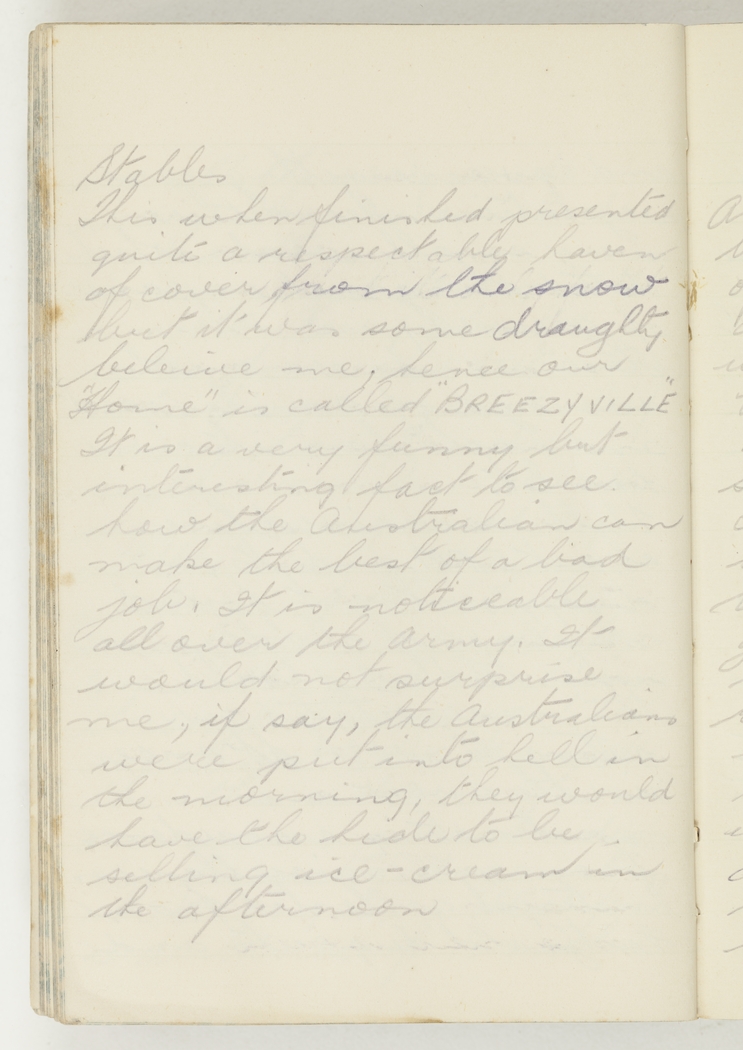 Stables
This when finished presented
quite a respectable haven
of cover from the snow
but it was some draughty
beleive me, hence our
"Home" is called "BREEZYVILLE"
It is a very funny but
interesting fact to see.
how the Australian can
make the best of a bad
job. It is noticeable
all over the Army. It
would not surprise
me, if say, the Australians
were put into hell in
the morning, they would
have the hide to be
selling ice-cream in
the afternoon